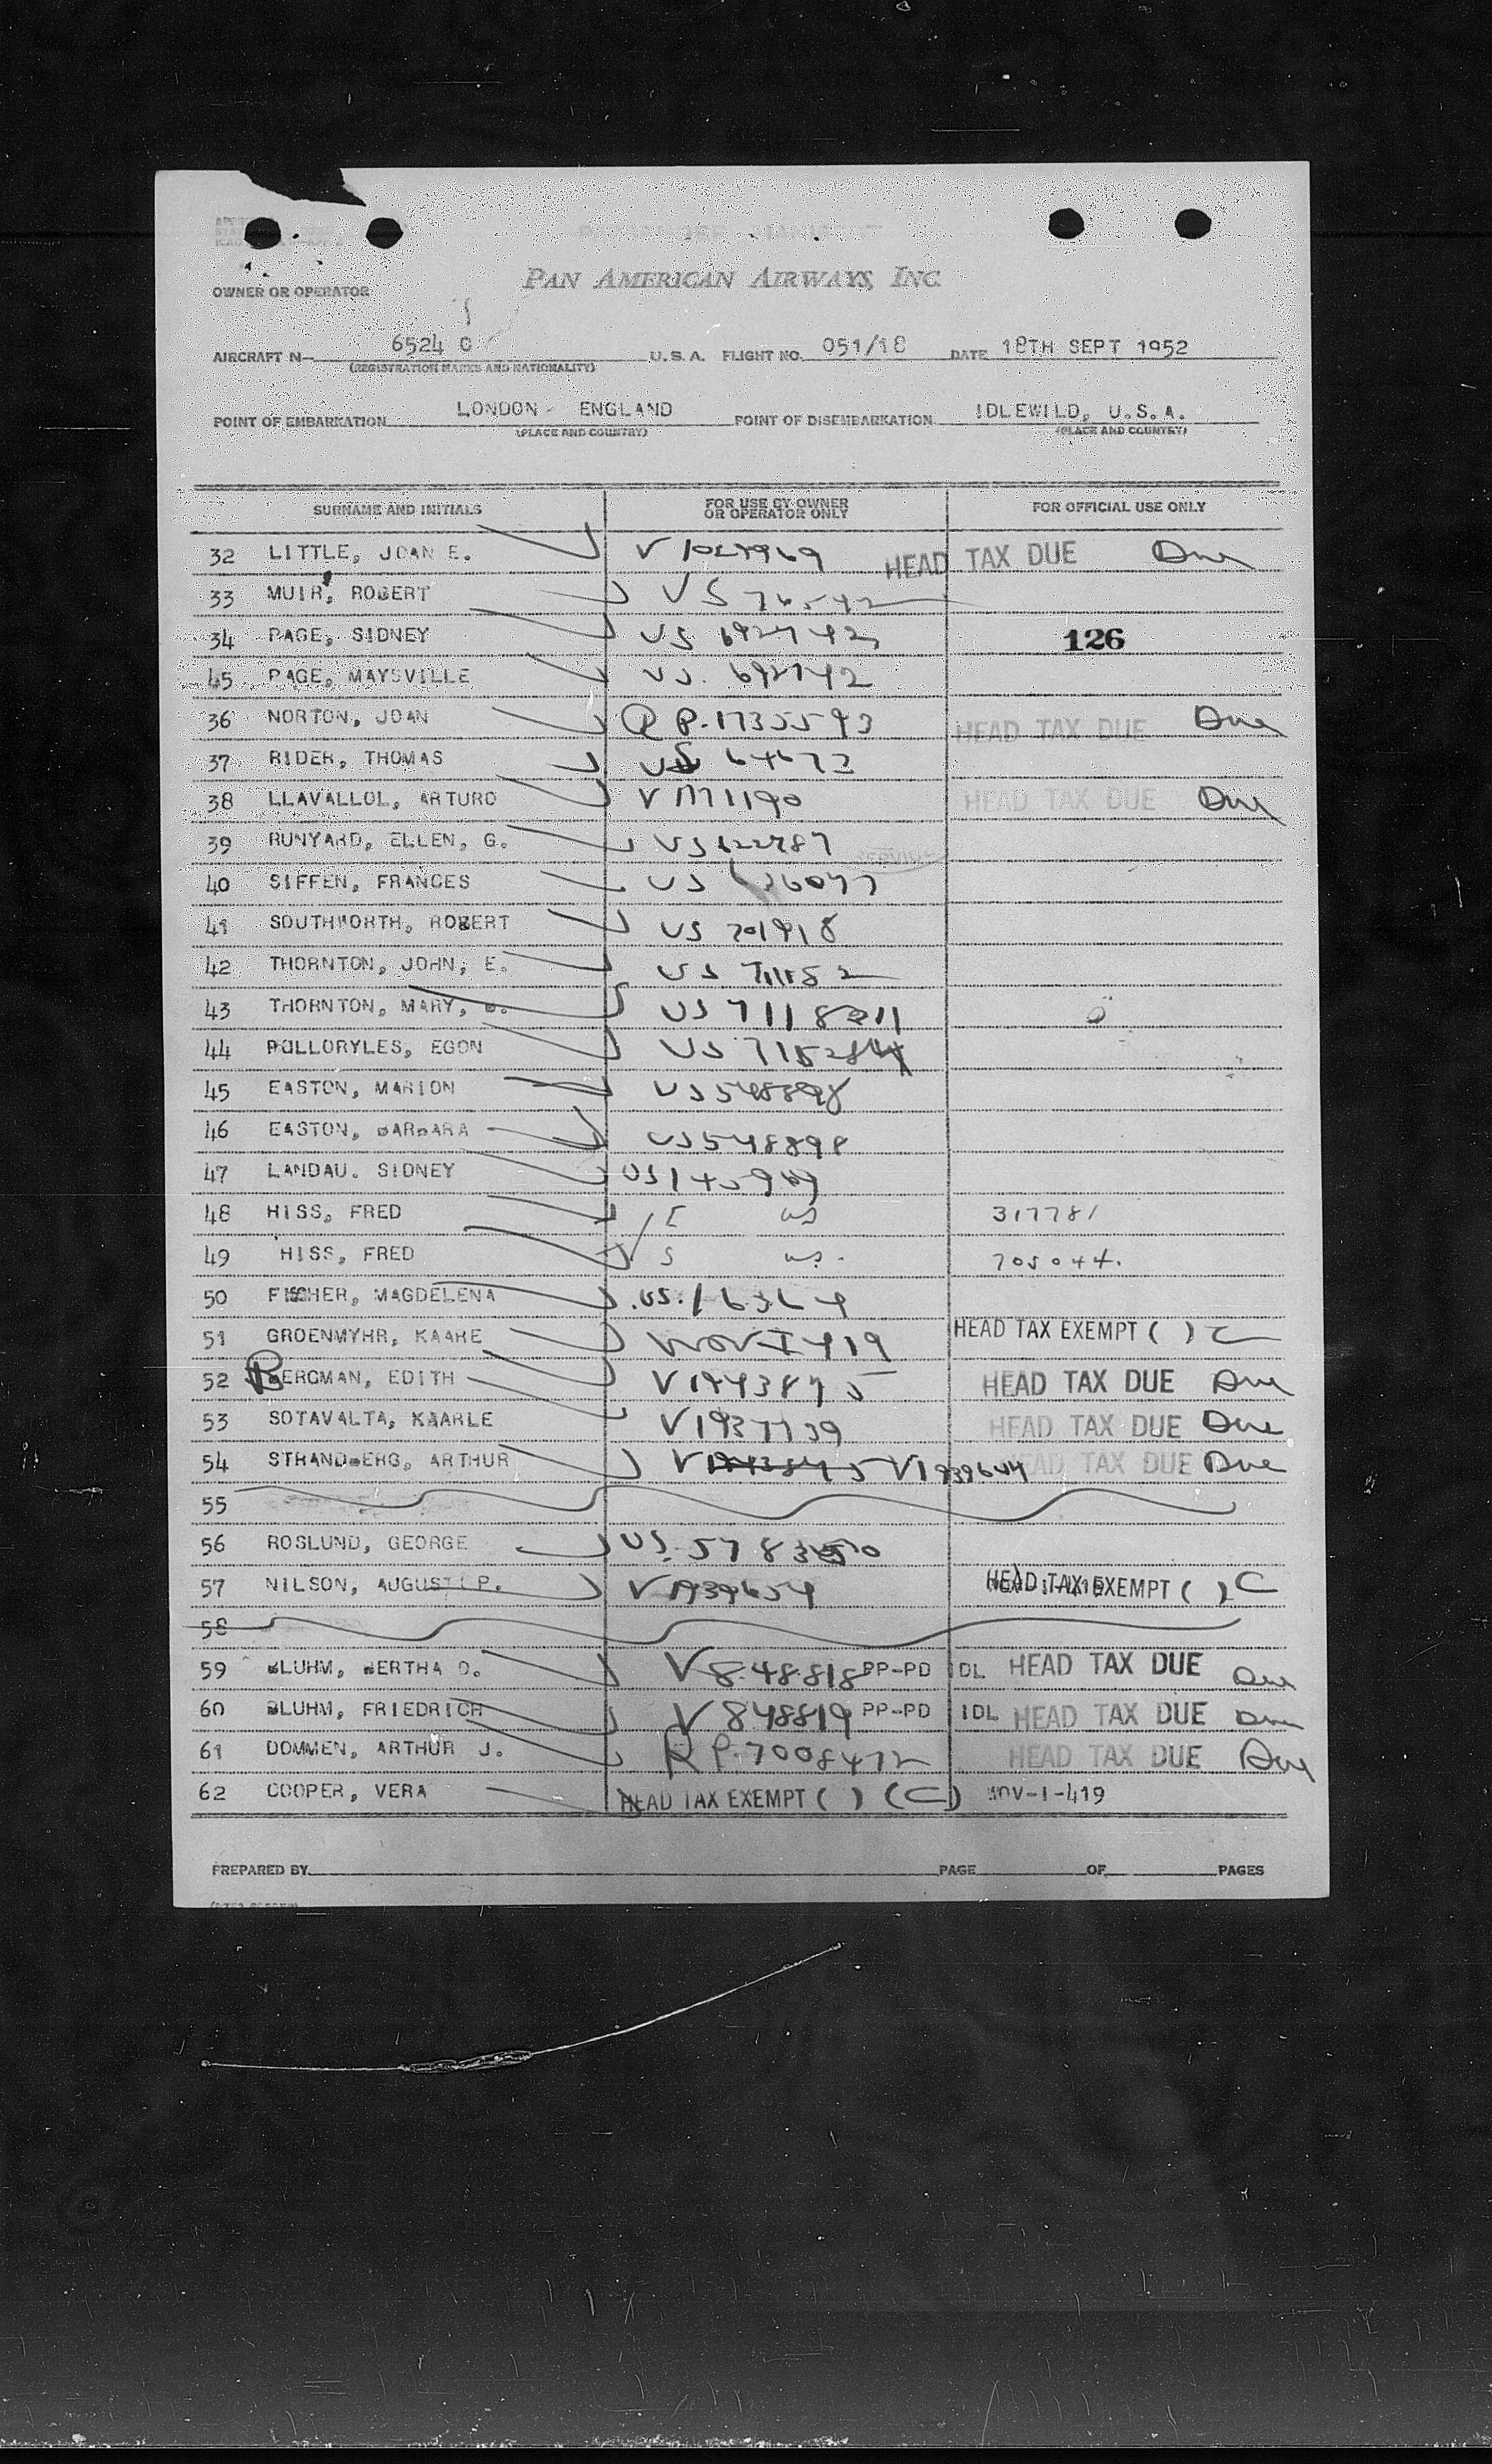 PAN AMERICAN AIRWAYS, INC.
OWNER OR OPERATOR
AIRCRAFT N- 6524 C U.S.A. FLIGHT NO. 051/18 DATE 18TH SEPT 1952
(REGISTRATION MARKS AND NATIONALITY)
POINT OF EMBARKATION LONDON - ENGLAND POINT OF DISEMBARKATION IDLEWILD, U.S.A.
(PLACE AND COUNTRY) (PLACE AND COUNTRY)
SURNAME AND INITIALS FOR USE BY OWNER OR OPERATOR ONLY FOR OFFICIAL USE ONLY
32 LITTLE, JOAN E. HEAD TAX DUE Due
33 MUIR, ROBERT US 76542
34 PAGE, SIDNEY US 692742 126
45 PAGE, MAYSVILLE US. 692742
36 NORTON, JOAN RP.1735593 HEAD TAX DUE Due
37 RIDER, THOMAS US 64672
38 LLAVALLOL, ARTURO V 171190 HEAD TAX DUE Due
39 RUNYARD, ELLEN, G. US 622787
40 SIFFEN, FRANCES US
41 SOUTHWORTH, ROBERT US 701918
42 THORNTON, JOHN, E. US
43 THORNTON, MARY, US
44 EGON US
45 EASTON, MARION US 548898
46 EASTON, BARBARA US 548898
47 LANDAU. SIDNEY US
48 HISS, FRED E US 317781
49 HISS, FRED S US. 705044.
50 FISCHER, MAGDELENA US. 16364
51 GROENMYHR, KAARE NOV-I 419 HEAD TAX EXEMPT ( ) C
52 BERGMAN, EDITH V 1943875 HEAD TAX DUE Due
53 SOTAVALTA, KAARLE V 1937739 HEAD TAX DUE Due
54 STRANDBERG, ARTHUR V1943875 V1939644 HEAD TAX DUE Due
55
56 ROSLUND, GEORGE US.
57 NILSON, AUGUST P. V 1939654 HEAD TAX EXEMPT ( ) C
58
59 BLUHM, BERTHA O. V 848818 PP-PD IDL HEAD TAX DUE Due
60 BLUHM, FRIEDRICH V 848819 PP-PD IDL HEAD TAX DUE Due
61 DOMMEN, ARTHUR J. RP.7008472 HEAD TAX DUE Due
62 COOPER, VERA HEAD TAX EXEMPT ( ) (C) NOV-1-419
PREPARED BY PAGE OF PAGES